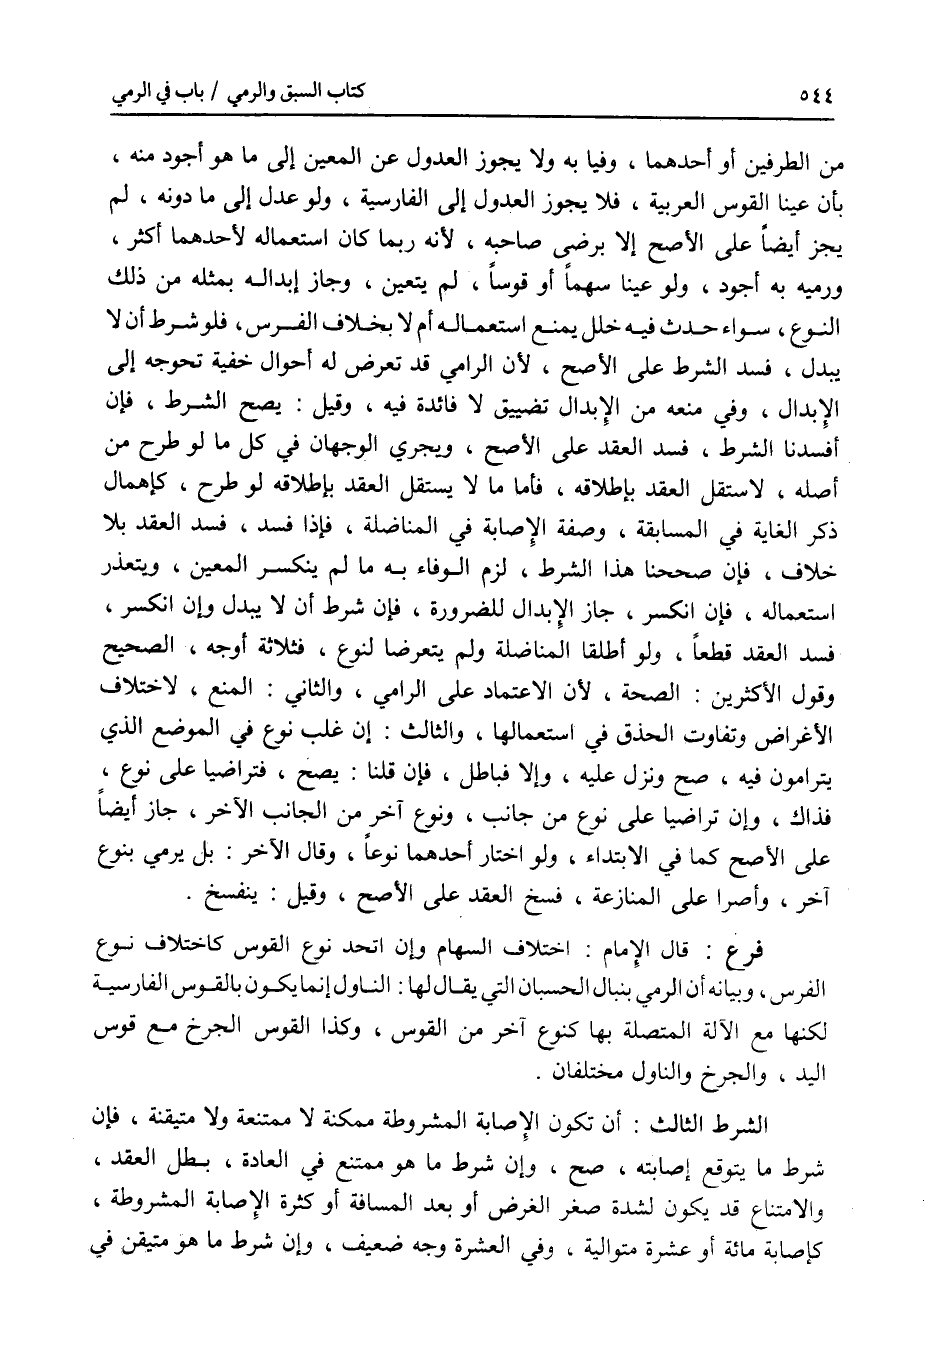 ٥٤٤
كتاب السبق والرمي / باب في الرمي
من الطرفين أو أحدهما ، وفيا به ولا يجوز العدول عن المعين إلى ما هو أجود منه ،
بأن عينا القوس العربية ، فلا يجوز العدول إلى الفارسية ، ولو عدل إلى ما دونه ، لم
يجز أيضاً على الأصح إلا برضى صاحبه ، لأنه ربما كان استعماله لأحدهما أكثر ،
ورميه به أجود ، ولو عينا سهماً أو قوساً ، لم يتعين ، وجاز إبداله بمثله من ذلك
النوع ، سواء حدث فيه خلل يمنع استعماله أم لا بخلاف الفرس ، فلو شرط أن لا
يبدل ، فسد الشرط على الأصح ، لأن الرامي قد تعرض له أحوال خفية تحوجه إلى
الإبدال ، وفي منعه من الإبدال تضييق لا فائدة فيه ، وقيل : يصح الشرط ، فإن
أفسدنا الشرط ، فسد العقد على الأصح ، ويجري الوجهان في كل ما لو طرح من
أصله ، لاستقل العقد بإطلاقه ، فأما ما لا يستقل العقد بإطلاقه لو طرح ، كإهمال
ذكر الغاية في المسابقة ، وصفة الإصابة في المناضلة ، فإذا فسد ، فسد العقد بلا
خلاف ، فإن صححنا هذا الشرط ، لزم الوفاء به ما لم ينكسر المعين ، ويتعذر
استعماله ، فإن انكسر ، جاز الإبدال للضرورة ، فإن شرط أن لا يبدل وإن انكسر ،
فسد العقد قطعاً ، ولو أطلقا المناضلة ولم يتعرضا لنوع ، فثلاثة أوجه ، الصحيح
وقول الأكثرين : الصحة ، لأن الاعتماد على الرامي ، والثاني : المنع ، لاختلاف
الأغراض وتفاوت الحذق في استعمالها ، والثالث : إن غلب نوع في الموضع الذي
يترامون فيه ، صح ونزل عليه ، وإلا فباطل ، فإن قلنا : يصح ، فتراضيا على نوع ،
فذاك ، وإن تراضيا على نوع من جانب ، ونوع آخر من الجانب الآخر ، جاز أيضاً
على الأصح كما في الابتداء ، ولو اختار أحدهما نوعاً ، وقال الآخر : بل يرمي بنوع
آخر ، وأصرا على المنازعة ، فسخ العقد على الأصح ، وقيل : ينفسخ .
فرع : قال الإمام : اختلاف السهام وإن اتحد نوع القوس كاختلاف نوع
الفرس ، وبيانه أن الرمي بنبال الحسبان التي يقال لها : الناول إنما يكون بالقوس الفارسية
لكنها مع الآلة المتصلة بها كنوع آخر من القوس ، وكذا القوس الجرخ مع قوس
اليد ، والجرخ والناول مختلفان .
الشرط الثالث : أن تكون الإصابة المشروطة ممكنة لا ممتنعة ولا متيقنة ، فإن
شرط ما يتوقع إصابته ، صح ، وإن شرط ما هو ممتنع في العادة ، بطل العقد ،
والامتناع قد يكون لشدة صغر الغرض أو بعد المسافة أو كثرة الإصابة المشروطة ،
كإصابة مائة أو عشرة متوالية ، وفي العشرة وجه ضعيف ، وإن شرط ما هو متيقن في